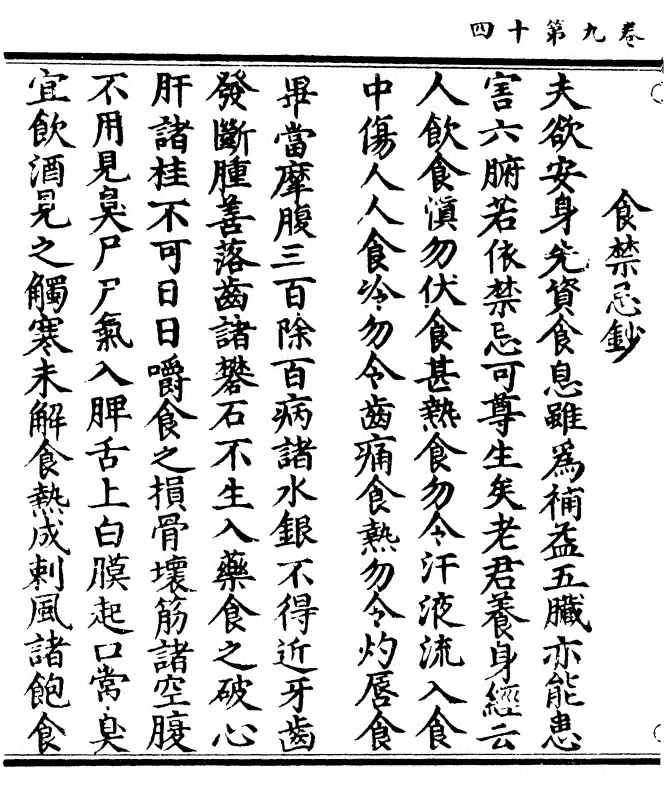 巻九第十四
食禁忌鈔
夫欲安身先資食息雖爲補益五臓亦能患
害六腑若依禁忌可尊生矣老君養身經云
人飲食滇勿伏食甚熱食勿令汗液流入食
中傷人人食冷勿令齒痛食熱勿令灼唇食
畢當摩腹三百除百病諸水銀不得近牙齒
發斷腫善落齒諸礬石不生入藥食之破心
肝諸桂不可日日嚼食之損骨壞筋諸空腹
不用見臭尸尸氣入脾舌上白膜起口常臭
宜飲酒見之觸寒未解食熱成刺風諸飽食